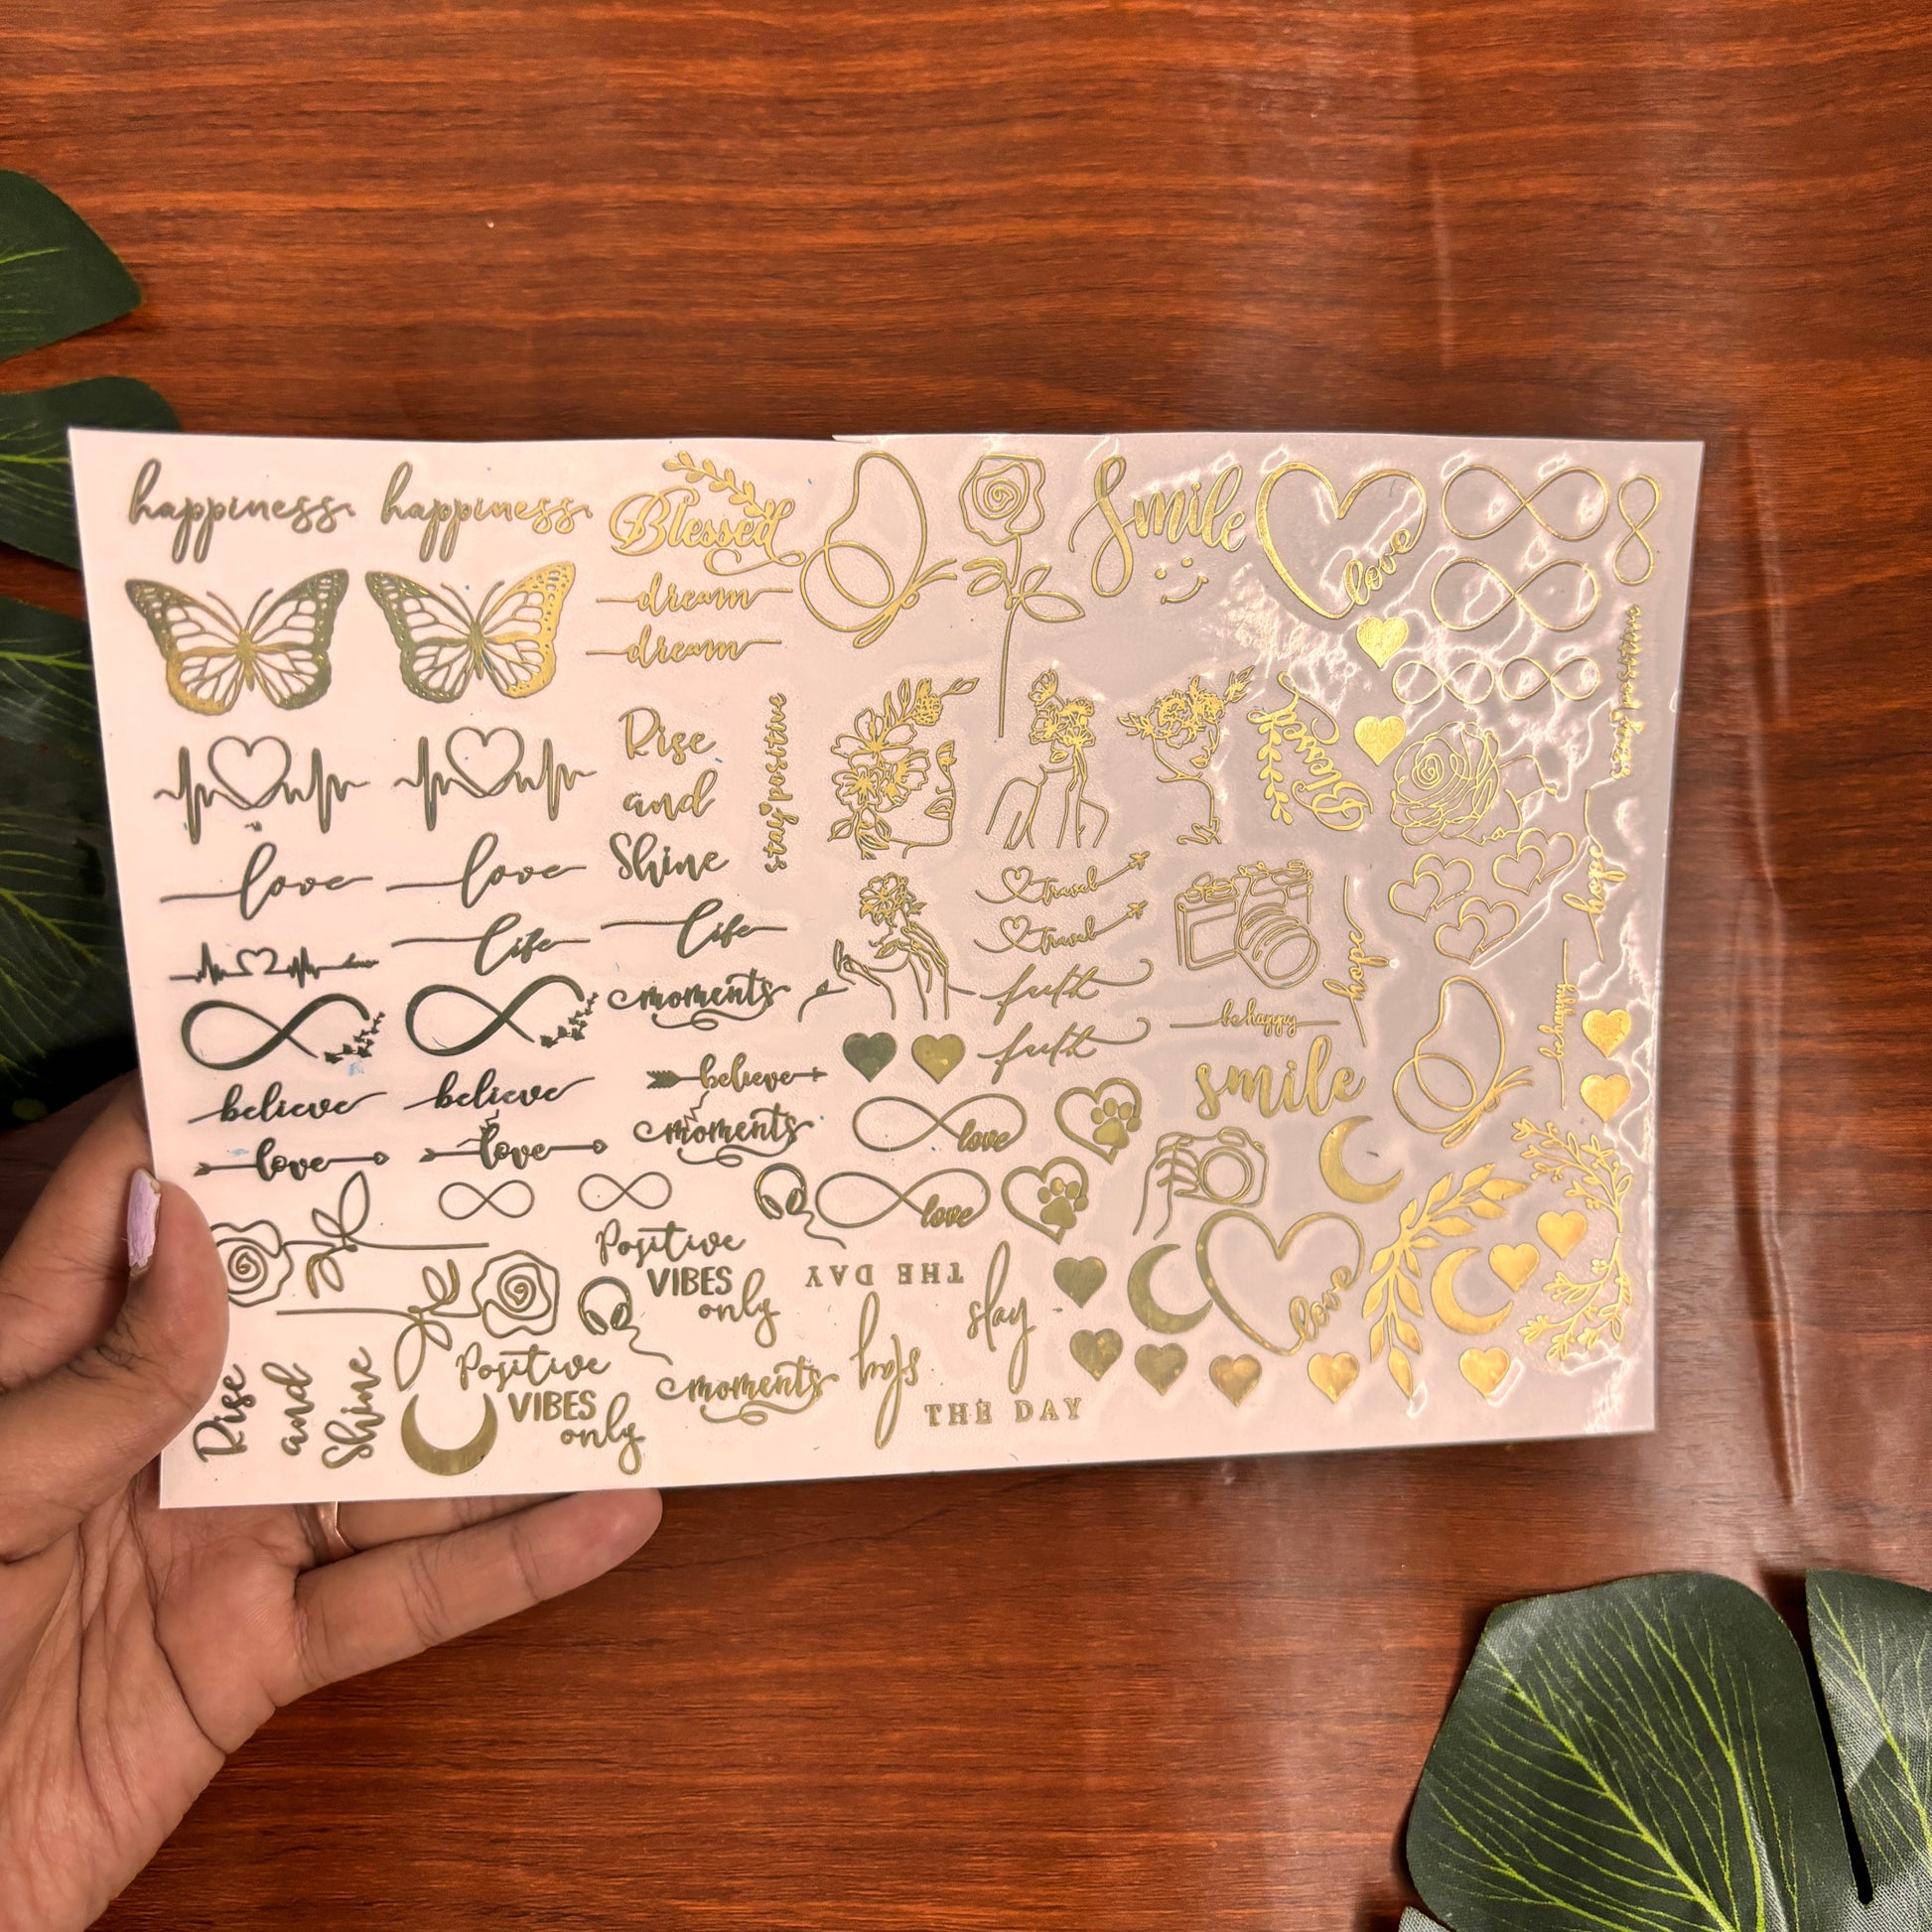 happiness
happiness
Blessed
Smile
love
dream
dream
stay positive
Rise
and
Shine
stay positive
Blessed
love
love
travel
travel
hope
hope
life
life
moments
faith
faith
be happy
be happy
believe
believe
believe
smile
love
love
moments
love
love
Positive
VIBES
only
THE DAY
slay
love
Rise
and
Shine
Positive
VIBES
only
moments
slay
THE DAY